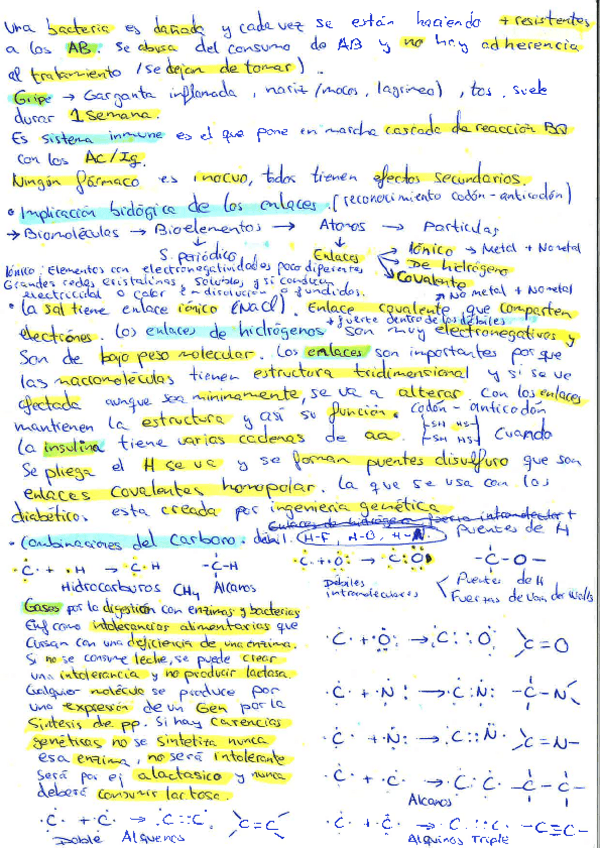 Una bacteria es dañada y cada vez se están haciendo + resistentes
a los AB. Se abusa del consumo de AB y no hay adherencia
al tratamiento (se dejan de tomar).
Gripe → Garganta inflamada, nariz (mocos, lagrimeo), tos. Suele
durar 1 semana.
Es sistema inmune es el que pone en marcha cascada de reacción BQ
con los Ac/Ig.
Ningún fármaco es inocuo, todos tienen efectos secundarios.
• Implicación biológica de los enlaces. (reconocimiento codón-anticodón)
→ Biomoléculas → Bioelementos → Atomos → Particulas
S. periódico Enlaces → Iónico → Metal + No metal
→ De hidrógeno
→ Covalente
→ No metal + No metal
Iónico: Elementos con electronegatividades poco diferentes
Grandes redes cristalinas, solubles y si conducen
electricidad o calor en disolución o fundidos.
• La sal tiene enlace iónico (NaCl). Enlace covalente que comparten
electrónes. Los enlaces de hidrógenos son muy electronegativos y
+ fuerte dentro de los débiles
son de bajo peso molecular. Los enlaces son importantes por que
las macromoléculas tienen estructura tridimensional y si se ve
afectada aunque sea mínimamente, se va a alterar. Con los enlaces
mantienen la estructura y así su función. codón - anticodón
La insulina tiene varias cadenas de aa. -SH HS- -SH HS- Cuando
se pliega el H se va y se forman puentes disulfuro que son
enlaces covalentes homopolar. La que se usa con los
diabéticos esta creada por ingeniería genética
• Combinaciones del Carbono. débil. (H-F, H-O, H-N. Puentes de H
·C· + ·H → ·C·H -C-H
Hidrocarburos CH4 Alcanos
·C· + ·O· → ·C·O -C-O-
Débiles intramoleculares
Puentes de H
Fuerzas de Van der Walls
Gases por la digestión con enzimas y bacterias
Enf como intolerancias alimentarias que
cursan con una deficiencia de una enzima.
Si no se consume leche, se puede crear
una intolerancia y no producir lactasa.
Cualquier molécula se produce por
una expresión de un Gen por la
Síntesis de pp. Si hay carencias
genéticas no se sintetiza nunca
esa enzima, no será intolerante
será por ej alactasico y nunca
deberá consumir lactosa.
·C· + ·C· → ·C::C· >C=C<
Doble Alquenos
·C· + ·O· → ·C::O >C=O
·C· + ·N: → ·C:N: -C-N<
·C· + ·N: → ·C::N: >C=N-
·C· + ·C· → ·C:C· -C-C-
Alcanos
·C· + ·C· → ·C:::C· -C≡C-
Alquinos Triple